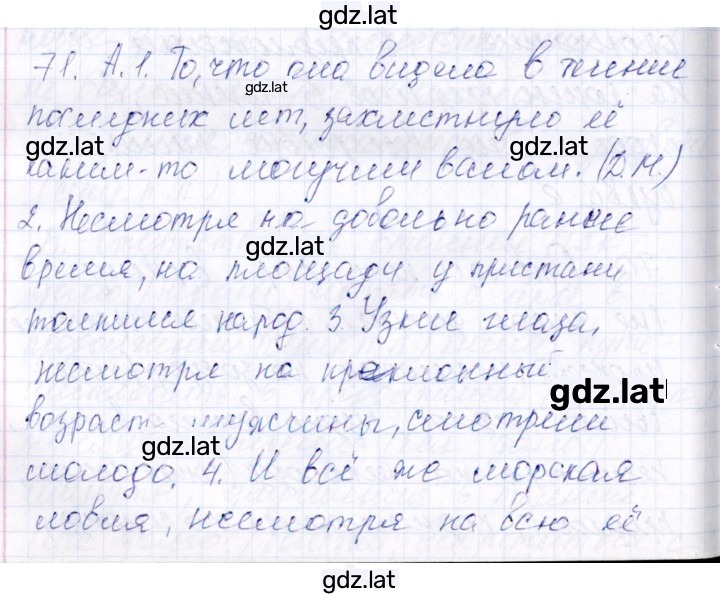 gdz.lat
71. А.1. То, что она видела в течение
gdz.lat
последних лет, захлестнуло её
gdz.lat gdz.lat
каким-то могучим валом. (Д.М.)
2. Несмотря на довольно раннее
gdz.lat
время, на площади у пристани
толпился народ. 3. Узкие глаза,
gdz.lat
несмотря на преклонный
gdz.lat
возраст мужчины, смотрели
gdz.lat
молодо. 4. И всё же морская
ловля, несмотря на всю её
gdz.lat